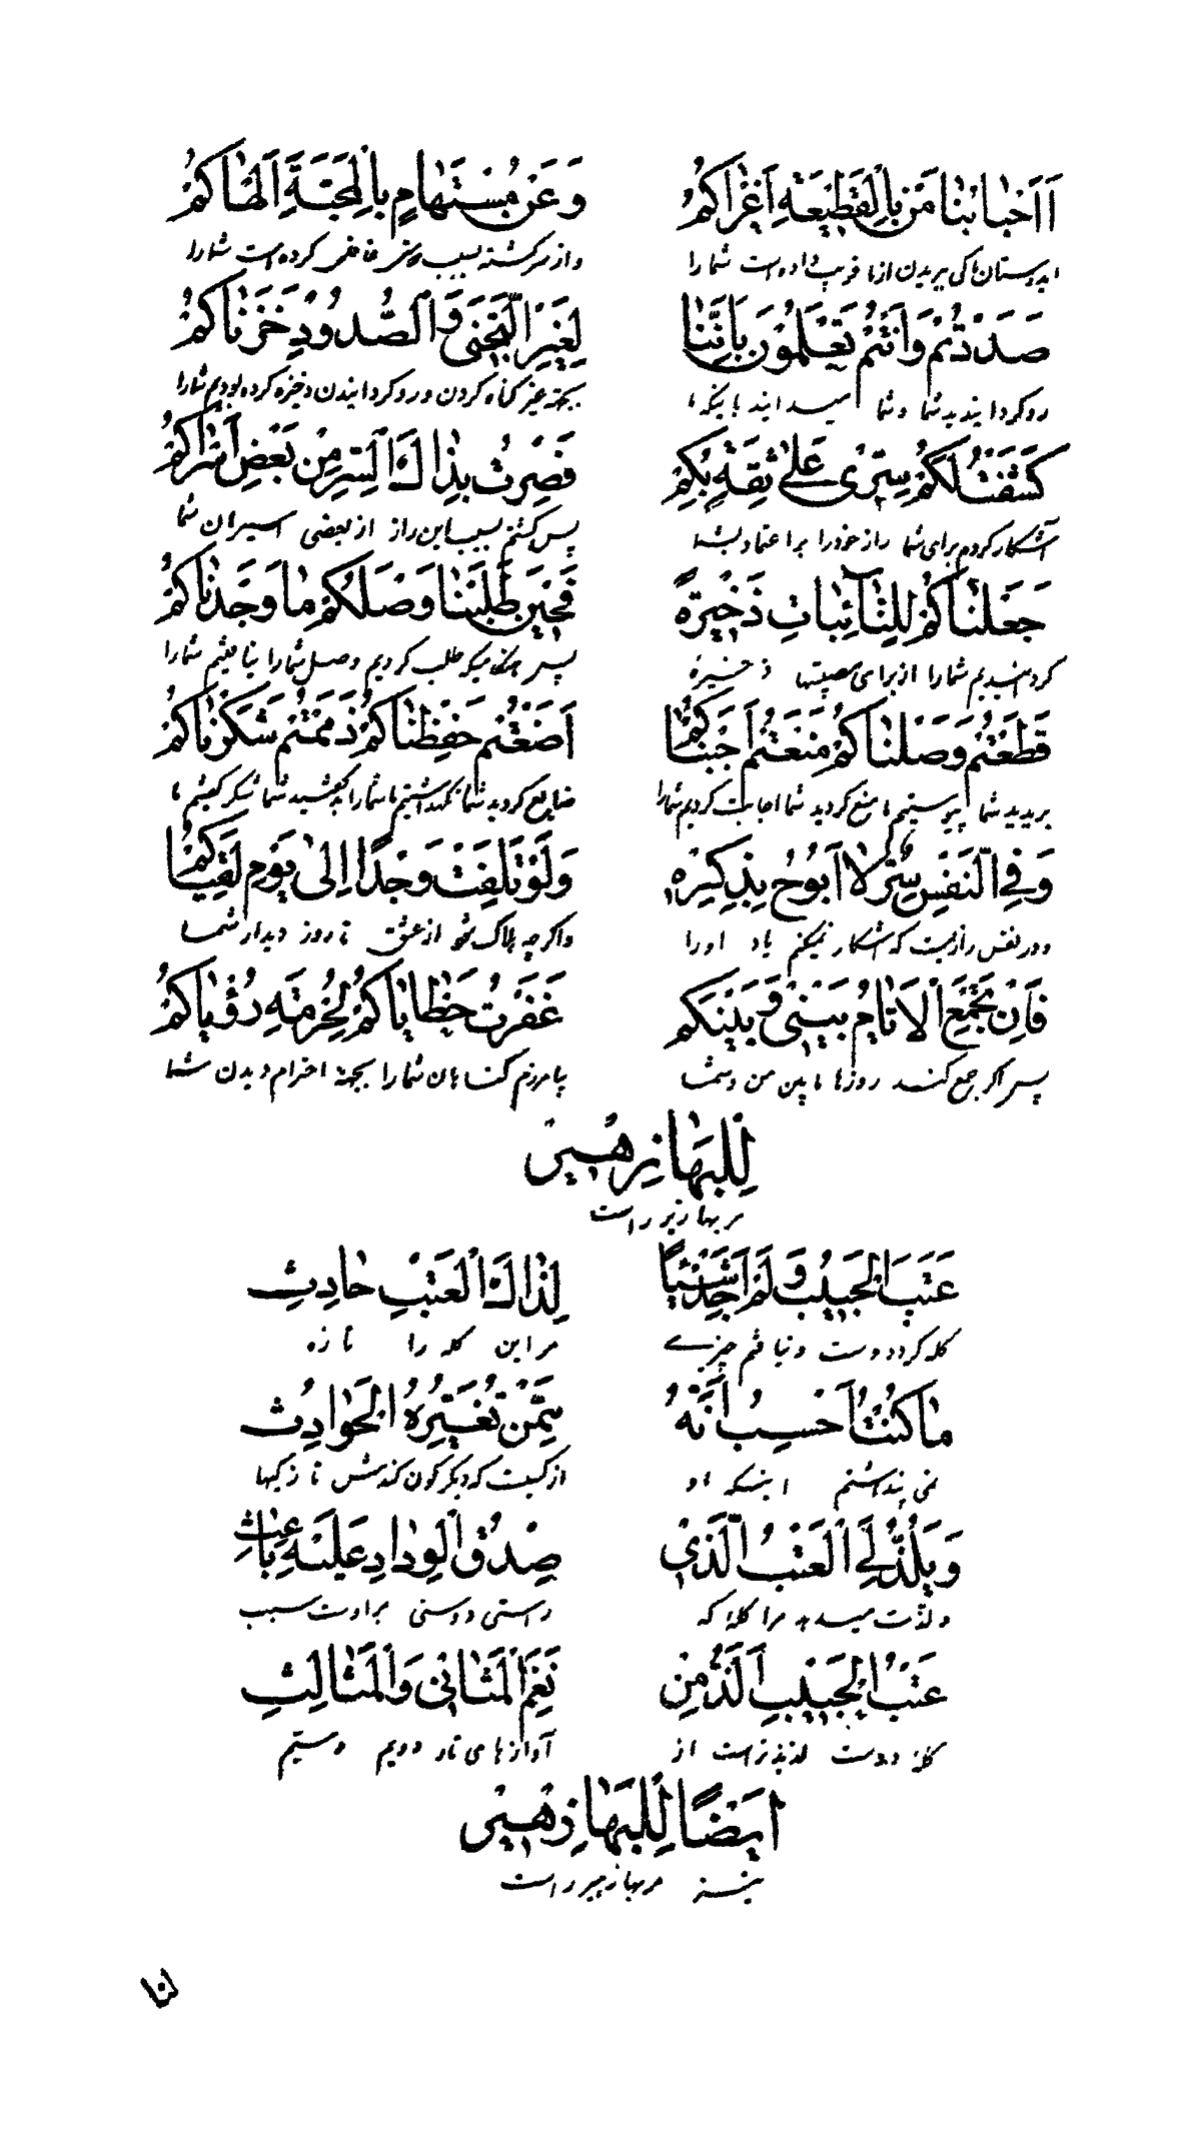 أَأَحْبابَنا مَنْ بِالْقَطِيعَةِ أَغْراكُمْ وَعَنْ مُسْتَهامٍ بِالْمَحَبَّةِ أَلْهاكُمْ
ای دوستان ما کی ببریدن از ما فریب داده است شما را و از سرگشته بسبب غافل کرده است شما را
صَدَدْتُمْ وَأَنْتُمْ تَعْلَمُونَ بِأَنَّنا لِغَيْرِ التَّجَنّى وَالصُّدُودِ ذَخَرْناكُمْ
رو گردانیدید شما و شما میدانید باینکه ما بجهة غیر گناه کردن و رو گردانیدن ذخیره کرده بودیم شما را
كَشَفْتُ لَكُمْ سِرّى عَلى ثِقَةٍ بِكُمْ فَصِرْتُ بِذاكَ السِّرِّ مِنْ بَعْضِ أَسْراكُمْ
آشکار کردم برای شما راز خود را بر اعتماد بشما پس گشتم بسبب این راز از بعضی اسیران شما
جَعَلْناكُمْ لِلنّائِباتِ ذَخِيرَةً فَحِينَ طَلَبْنا وَصْلَكُمْ ما وَجَدْناكُمْ
گردانیدیم شما را از برای مصیبتها ذخیرۀ پس هنگامیکه طلب کردیم وصل شما را نیافتیم شما را
قَطَعْتُمْ وَصَلْناكُمْ مَنَعْتُمْ أَجَبْناكُمْ أَضَعْتُمْ حَفِظْناكُمْ ذَمَمْتُمْ شَكَرْناكُمْ
بریدید شما پیوستیم ما منع کردید شما اجابت کردیم شما را ضایع کردید شما نگهداشتیم ما شما را شما شکر گفتیم ما
وَفِي النَّفْسِ سِرٌّ لا أَبُوحُ بِذِكْرِهِ وَلَوْ تَلِفَتْ وَجْدًا إِلى يَوْمِ لُقْياكُمْ
و در نفس رازیست که آشکار نمیکنم یاد او را و اگرچه هلاک شود از عشق تا روز دیدار شما
فَإِنْ تَجْمَعِ الْأَيّامُ بَيْنِى وَبَيْنَكُمْ غَفَرْتُ خَطاياكُمْ لِحُرْمَةِ رُؤْياكُمْ
پس اگر جمع کند روزها مابین من و شما بیامرزم گناهان شما را بجهة احترام دیدن شما
لِلْبَهاءِ زُهَيْرٍ
مر بهاء زهیر راست
عَتَبَ الْحَبِيبُ وَلَمْ أَجِدْ شَيْئًا لِذاكَ الْعَتْبِ حادِث
گله کرد دوست و نیافتم چیزی مر این گله را تازه
ما كُنْتُ أَحْسِبُ أَنَّهُ مِمَّنْ تُغَيِّرُهُ الْحَوادِث
نمی پنداشتم اینکه او از کسیست که دیگرگون کندش تازگیها
وَيَلَذُّ لِي الْعَتْبُ الَّذِى صِدْقُ الْوِدادِ عَلَيْهِ باعِث
و لذت میدهد مرا گلۀ که راستی دوستی بر اوست سبب
عَتْبُ الْحَبِيبِ أَلَذُّ مِنْ نَغَمِ الْمَثانِى وَالْمَثالِث
گلۀ دوست لذیذتر است از آوازهای تار دویم و سیّم
أَيْضًا لِلْبَهاءِ زُهَيْرٍ
نیز مر بهاء زهیر راست